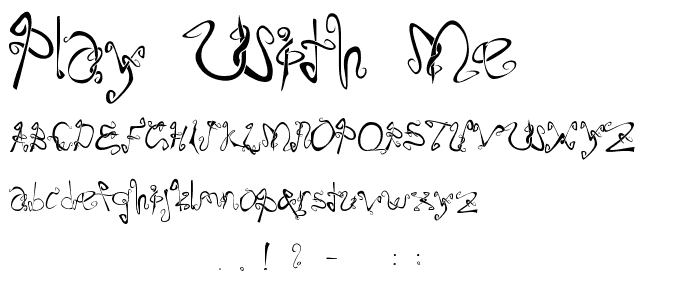 Play With Me
ABCDEFGHIJKLMNOPQRSTUVWXYZ
abcdefghijklmnopqrstuvwxyz
. , ! ? - : :